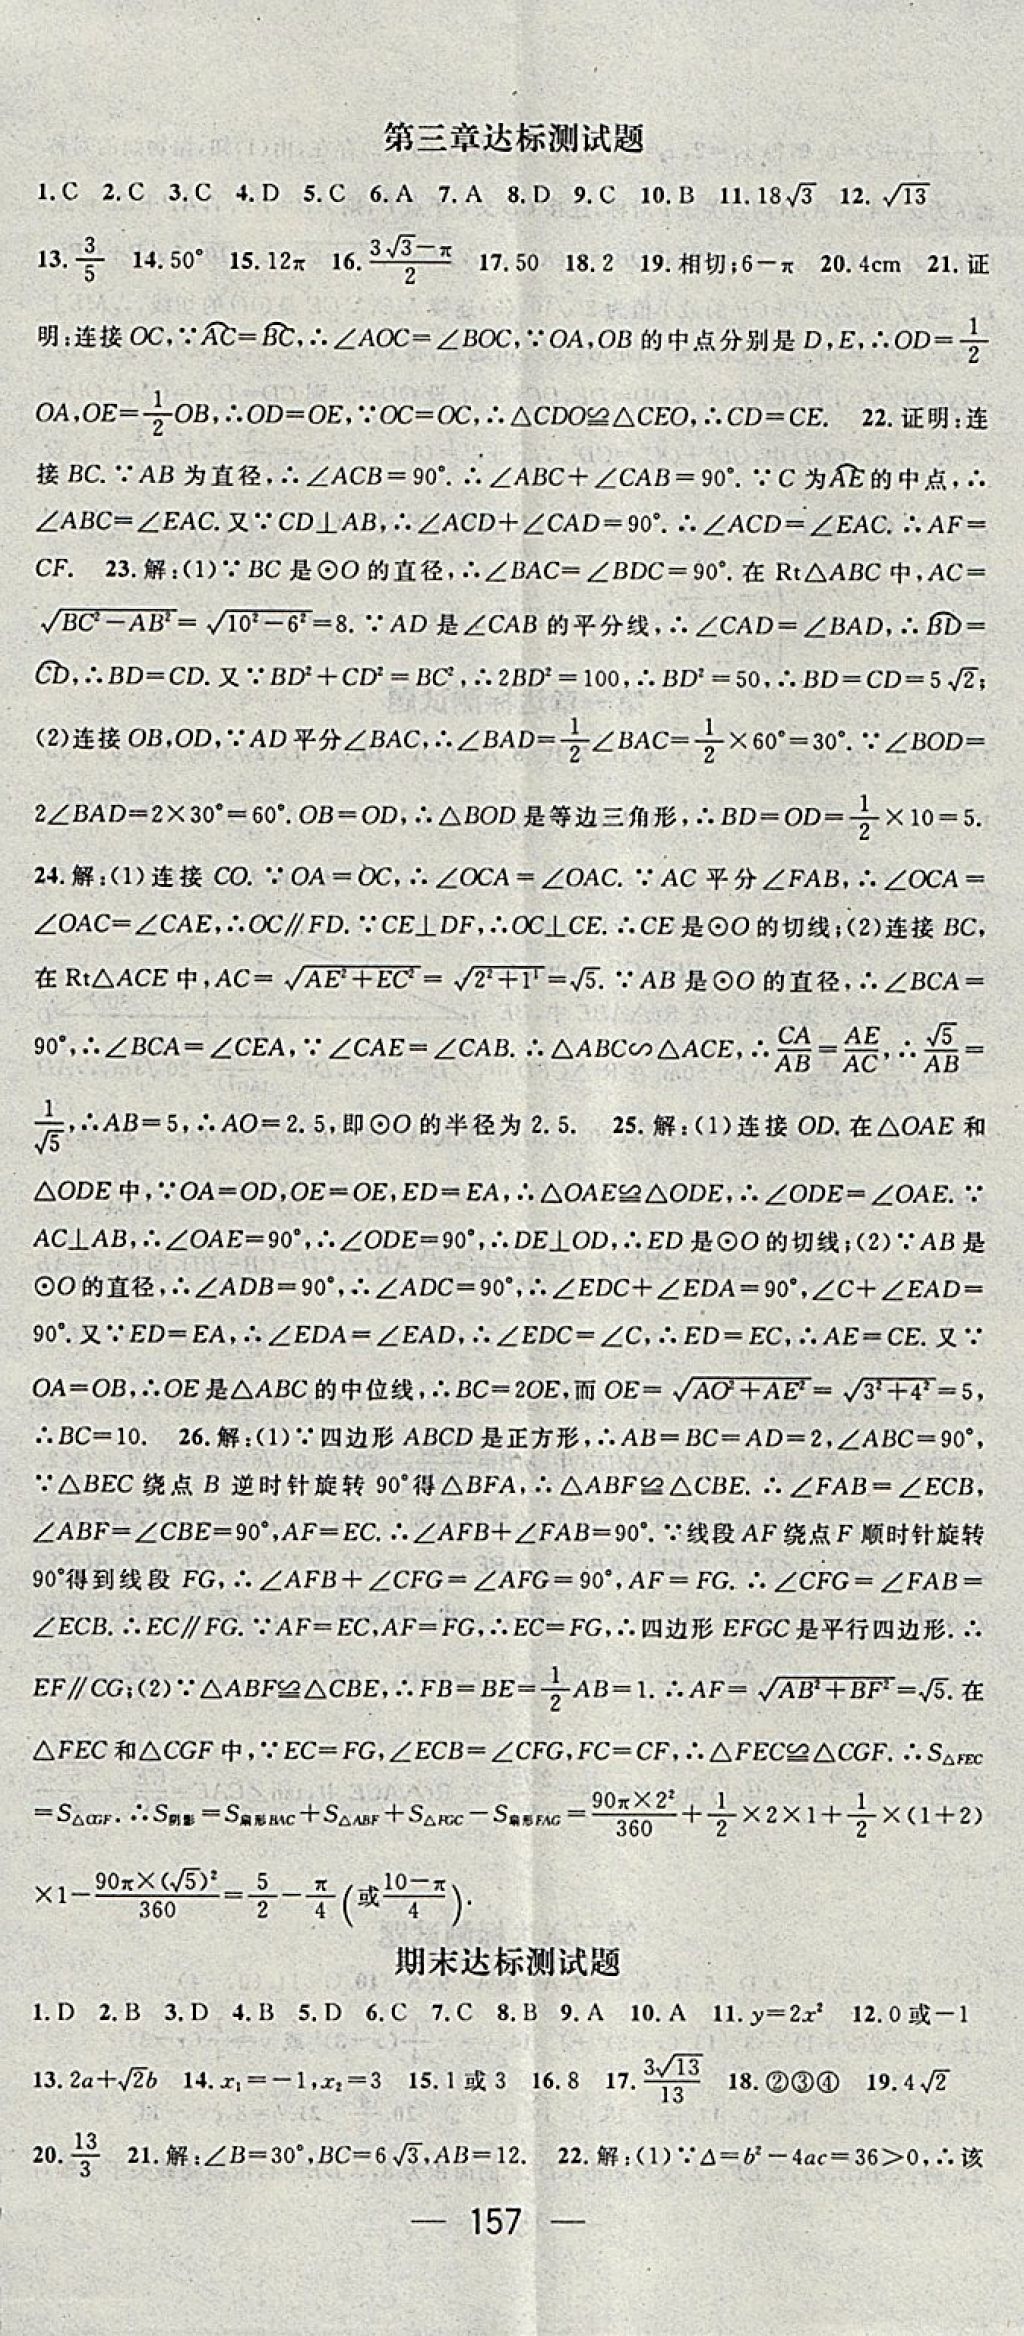 第三章达标测试题
1.C 2.C 3.C 4.D 5.C 6.A 7.A 8.D 9.C 10.B 11.18√3 12.√13
13.3/5 14.50° 15.12π 16.(3√3−π)/2 17.50 18.2 19.相切;6−π 20.4cm 21.证
明:连接OC,∵⌒AC=⌒BC,∴∠AOC=∠BOC,∵OA,OB的中点分别是D,E,∴OD=1/2
OA,OE=1/2OB,∴OD=OE,∵OC=OC,∴△CDO≌△CEO,∴CD=CE. 22.证明:连
接BC.∵AB为直径,∴∠ACB=90°.∴∠ABC+∠CAB=90°.∵C为⌒AE的中点,∴
∠ABC=∠EAC.又∵CD⊥AB,∴∠ACD+∠CAD=90°.∴∠ACD=∠EAC.∴AF=
CF. 23.解:(1)∵BC是⊙O的直径,∴∠BAC=∠BDC=90°.在Rt△ABC中,AC=
√(BC²−AB²)=√(10²−6²)=8.∵AD是∠CAB的平分线,∴∠CAD=∠BAD,∴⌒BD=
⌒CD,∴BD=CD.又∵BD²+CD²=BC²,∴2BD²=100,∴BD²=50,∴BD=CD=5√2;
(2)连接OB,OD,∵AD平分∠BAC,∴∠BAD=1/2∠BAC=1/2×60°=30°.∵∠BOD=
2∠BAD=2×30°=60°.OB=OD,∴△BOD是等边三角形,∴BD=OD=1/2×10=5.
24.解:(1)连接CO.∵OA=OC,∴∠OCA=∠OAC.∵AC平分∠FAB,∴∠OCA=
∠OAC=∠CAE,∴OC∥FD.∵CE⊥DF,∴OC⊥CE.∴CE是⊙O的切线;(2)连接BC,
在Rt△ACE中,AC=√(AE²+EC²)=√(2²+1¹)=√5.∵AB是⊙O的直径,∴∠BCA=
90°,∴∠BCA=∠CEA,∵∠CAE=∠CAB.∴△ABC∽△ACE,∴CA/AB=AE/AC,∴√5/AB=
1/√5,∴AB=5,∴AO=2.5,即⊙O的半径为2.5. 25.解:(1)连接OD.在△OAE和
△ODE中,∵OA=OD,OE=OE,ED=EA,∴△OAE≌△ODE,∴∠ODE=∠OAE.∵
AC⊥AB,∴∠OAE=90°,∴∠ODE=90°,∴DE⊥OD,∴ED是⊙O的切线;(2)∵AB是
⊙O的直径,∴∠ADB=90°,∴∠ADC=90°,∴∠EDC+∠EDA=90°,∠C+∠EAD=
90°.又∵ED=EA,∴∠EDA=∠EAD,∴∠EDC=∠C,∴ED=EC,∴AE=CE.又∵
OA=OB,∴OE是△ABC的中位线,∴BC=2OE,而OE=√(AO²+AE²)=√(3²+4²)=5,
∴BC=10. 26.解:(1)∵四边形ABCD是正方形,∴AB=BC=AD=2,∠ABC=90°,
∵△BEC绕点B逆时针旋转90°得△BFA,∴△ABF≌△CBE.∴∠FAB=∠ECB,
∠ABF=∠CBE=90°,AF=EC.∴∠AFB+∠FAB=90°.∵线段AF绕点F顺时针旋转
90°得到线段FG,∴∠AFB+∠CFG=∠AFG=90°,AF=FG.∴∠CFG=∠FAB=
∠ECB.∴EC∥FG.∵AF=EC,AF=FG,∴EC=FG,∴四边形EFGC是平行四边形.∴
EF∥CG;(2)∵△ABF≌△CBE,∴FB=BE=1/2AB=1.∴AF=√(AB²+BF²)=√5.在
△FEC和△CGF中,∵EC=FG,∠ECB=∠CFG,FC=CF,∴△FEC≌△CGF.∴S△FEC
=S△CGF.∴S阴影=S扇形BAC+S△ABF+S△FGC−S扇形FAG=90π×2²/360+1/2×2×1+1/2×(1+2)
×1−90π×(√5)²/360=5/2−π/4(或(10−π)/4).
期末达标测试题
1.D 2.B 3.D 4.B 5.D 6.C 7.C 8.B 9.A 10.A 11.y=2x² 12.0或−1
13.2a+√2b 14.x₁=−1,x₂=3 15.1或3 16.8 17.3√13/13 18.②③④ 19.4√2
20.13/3 21.解:∠B=30°,BC=6√3,AB=12. 22.解:(1)∵Δ=b²−4ac=36>0,∴该
— 157 —